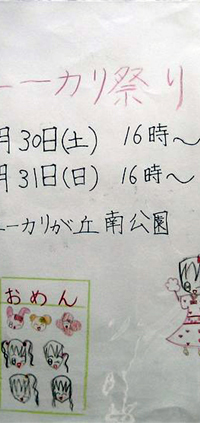 ーカリ祭り
月30日(土) 16時～
月31日(日) 16時～
ユーカリが丘南公園
おめん